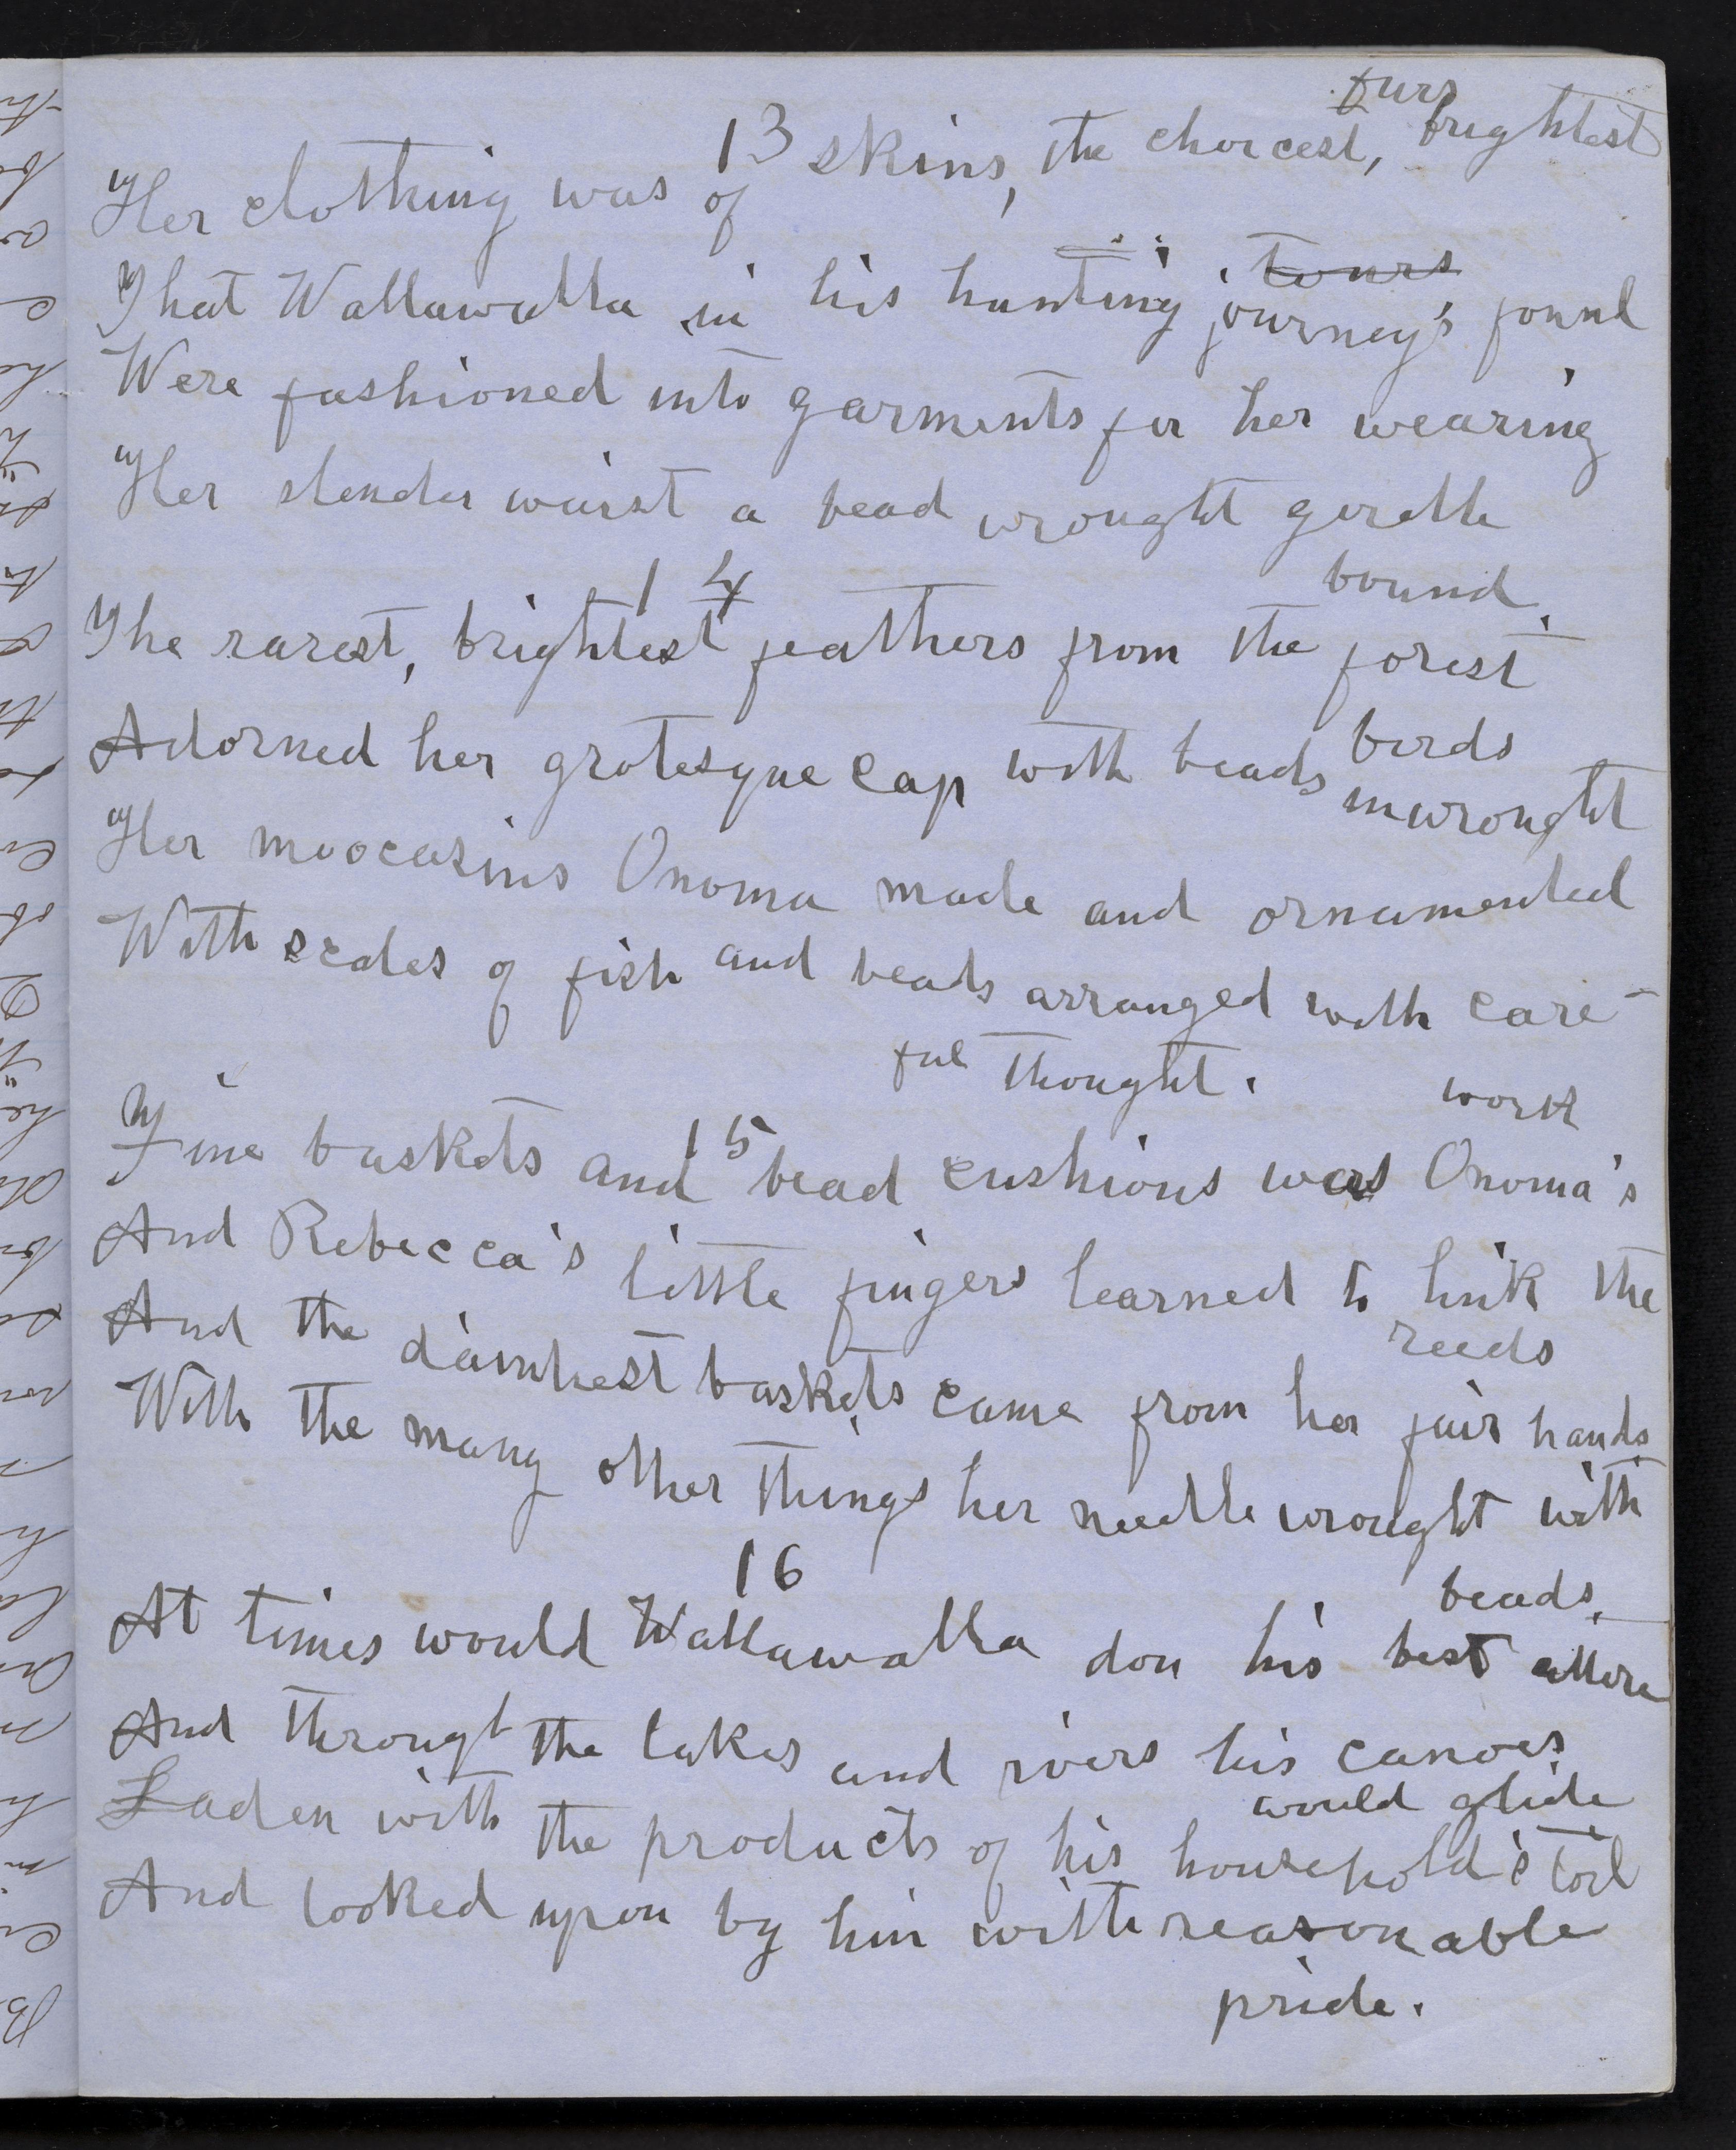 13
furs
Her clothing was of skins, the choicest, brightest
That Wallawalla in his hunting journey's tours found
Were fashioned into garments for her wearing
Her slender waist a bead wrought girdle
bound.
14
The rarest, brightest feathers from the forest
birds
Adorned her grotesque cap with beads inwrought
Her moocasins Onoma made and ornamented
With scales of fish and beads arranged with care-
ful thought.
15
work
Fine baskets and bead cushions was Onoma's
And Rebecca's little fingers learned to link the
reeds
And the daintiest baskets came from her fair hands.
With the many other things her needle wrought with
beads.
16
At times would Wallawalla don his best attire
And througt the lakes and rivers his canoes
would glide
Laden with the products of his household's toil
And looked upon by him with reasonable
pride.